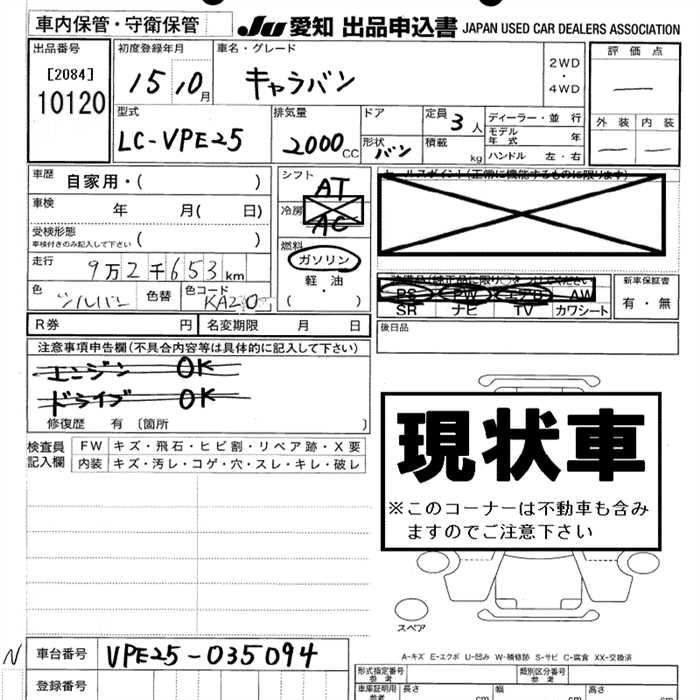 車内保管・守衛保管
JU 愛知 出品申込書 JAPAN USED CAR DEALERS ASSOCIATION
出品番号
[2084]
10120
初度登録年月
15 10月
車名・グレード
キャラバン
2WD
・
4WD
評価点
外装 内装
型式
LC-VPE25
排気量
2000cc
ドア
形状 バン
定員 3人
積載 kg
ディーラー・並行
モデル年式 年
ハンドル 左・右
車歴 自家用・( )
車検 年 月( 日)
受検形態
車検付きのみ記入して下さい ( )
走行 9万2千653km
色 シルバー 色替 色コード KA2(0)
シフト AT
冷房 AC
燃料
ガソリン
軽油
( ・ )
セールスポイント(正常に機能するものに限ります)
PS PW エアB AW
SR ナビ TV カワシート
新車保証書
有・無
R券 円 名変期限 月 日
後日品
注意事項申告欄(不具合内容等は具体的に記入して下さい)
エンジン OK
ドライブ OK
修復歴 有〔箇所 〕
検査員記入欄
FW キズ・飛石・ヒビ割・リペア跡・X要
内装 キズ・汚レ・コゲ・穴・スレ・キレ・破レ
現状車
※このコーナーは不動車も含み
ますのでご注意下さい
スペア
A-キズ E-エクボ U-凹み W-補修跡 S-サビ C-腐食 XX-交換済
N
車台番号 VPE25-035094
登録番号
形式指定番号 参考
類別区分番号 参考
車庫証明用 参考
長さ cm 幅 cm 高さ cm